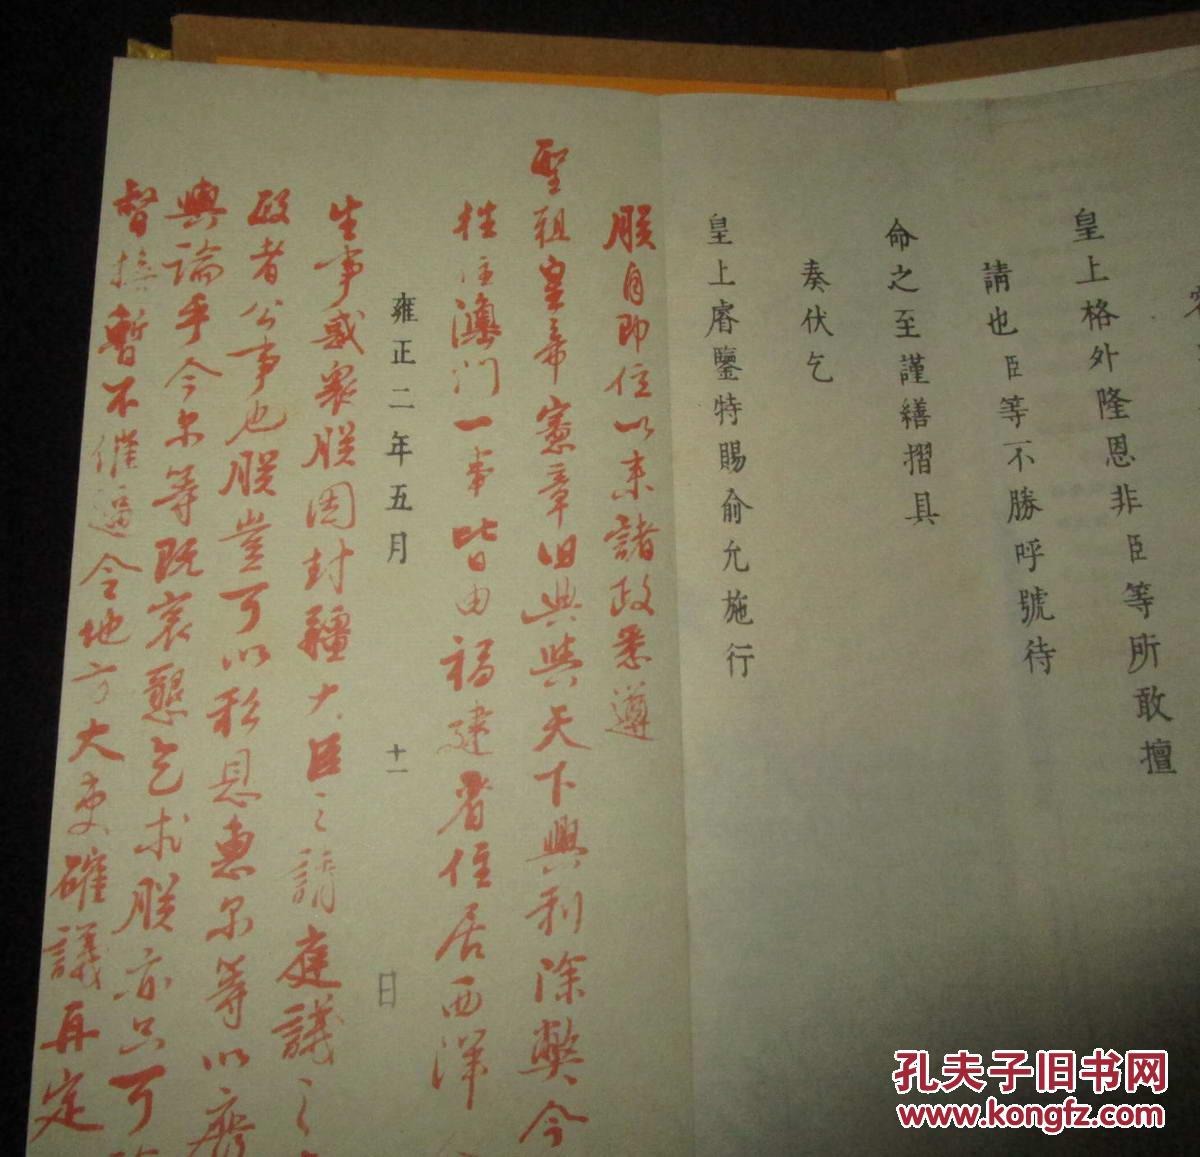 皇上格外隆恩非臣等所敢擅
請也臣等不勝呼號待
命之至謹繕摺具
奏伏乞
皇上睿鑒特賜俞允施行
朕自即位以来諸政悉遵
聖祖皇帝憲章旧典與天下興利除弊今
住澳门一事皆由福建省住居西洋
雍正二年五月 十一 日
生事惑衆朕因封疆大臣之請庭議之
政者公事也朕豈可以私恩惠尔等以廢
輿論乎今尔等既哀懇乞求朕亦只可
督撫暫不催逼令地方大吏確議再定
孔夫子旧书网
www.kongfz.com